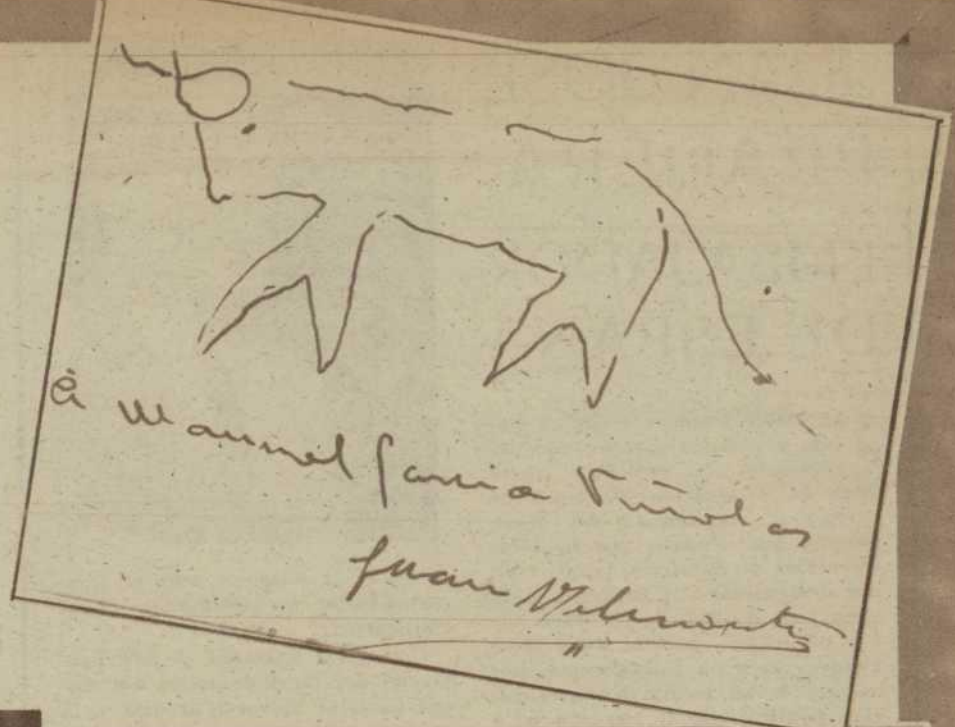 à Manuel García Viñolas
Juan Belmonte